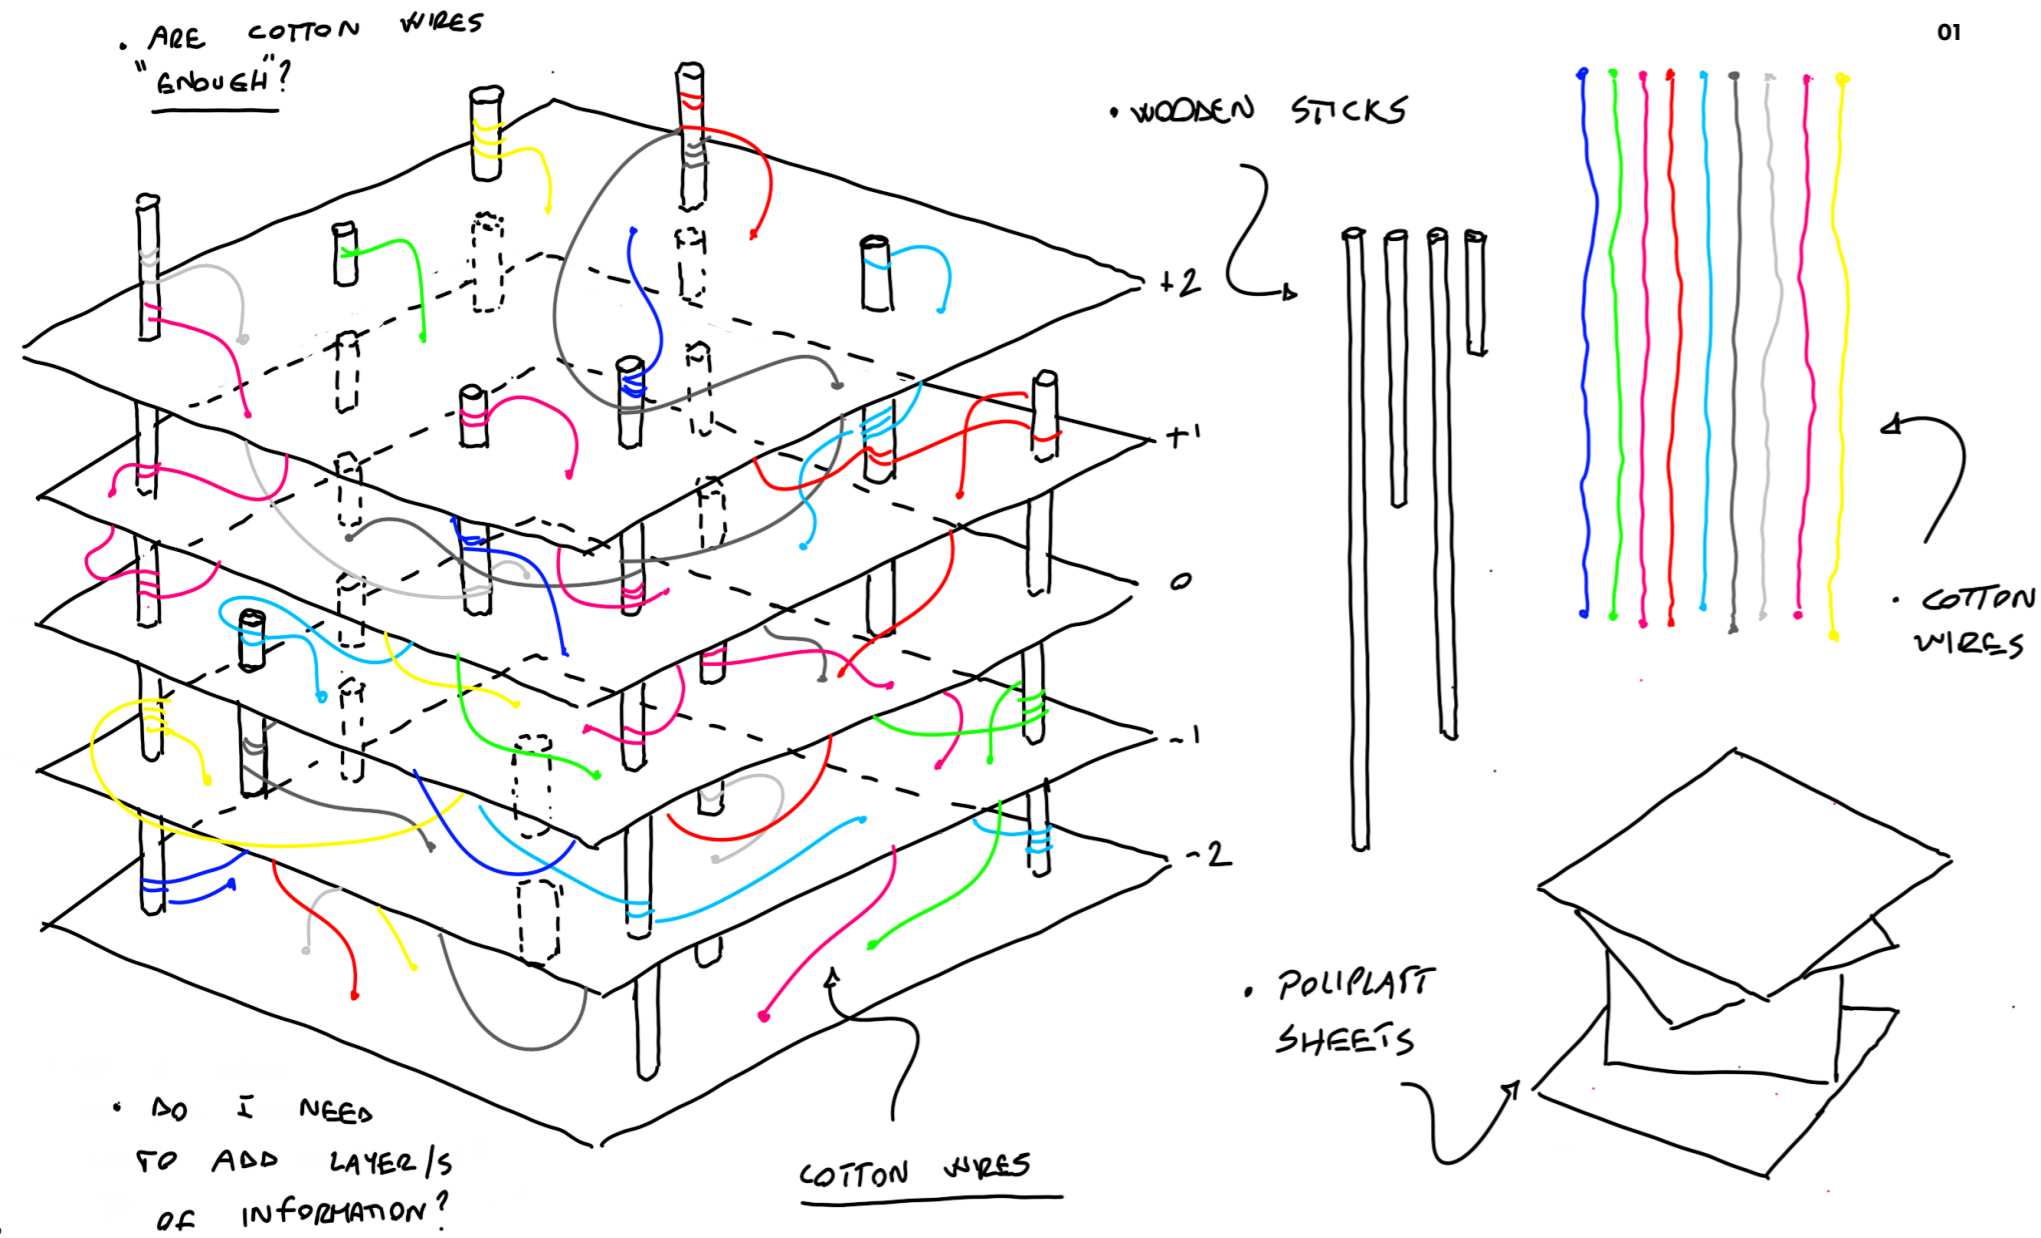 • ARE COTTON WIRES
"ENOUGH"?
01
• WOODEN STICKS
+2
+1
0
-1
-2
• COTTON
WIRES
• POLIPLAST
SHEETS
• DO I NEED
TO ADD LAYER/S
OF INFORMATION?
COTTON WIRES